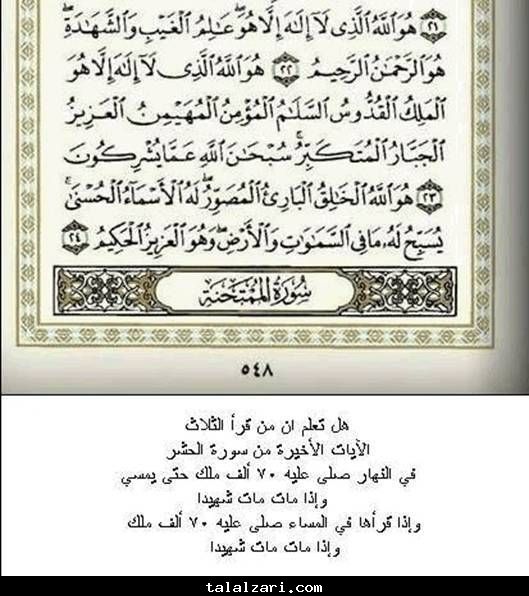 ٢١ هُوَ ٱللَّهُ ٱلَّذِى لَآ إِلَٰهَ إِلَّا هُوَ ۖ عَٰلِمُ ٱلْغَيْبِ وَٱلشَّهَٰدَةِ ۖ
هُوَ ٱلرَّحْمَٰنُ ٱلرَّحِيمُ ٢٢ هُوَ ٱللَّهُ ٱلَّذِى لَآ إِلَٰهَ إِلَّا هُوَ
ٱلْمَلِكُ ٱلْقُدُّوسُ ٱلسَّلَٰمُ ٱلْمُؤْمِنُ ٱلْمُهَيْمِنُ ٱلْعَزِيزُ
ٱلْجَبَّارُ ٱلْمُتَكَبِّرُ ۚ سُبْحَٰنَ ٱللَّهِ عَمَّا يُشْرِكُونَ
٢٣ هُوَ ٱللَّهُ ٱلْخَٰلِقُ ٱلْبَارِئُ ٱلْمُصَوِّرُ ۖ لَهُ ٱلْأَسْمَآءُ ٱلْحُسْنَىٰ ۚ
يُسَبِّحُ لَهُۥ مَا فِى ٱلسَّمَٰوَٰتِ وَٱلْأَرْضِ ۖ وَهُوَ ٱلْعَزِيزُ ٱلْحَكِيمُ ٢٤
سُورَةُ الْمُمْتَحَنَةِ
٥٤٨
هل تعلم ان من قرأ الثلاث
الآيات الأخيرة من سورة الحشر
في النهار صلى عليه ٧٠ ألف ملك حتى يمسي
وإذا مات مات شهيدا
وإذا قرأها في المساء صلى عليه ٧٠ ألف ملك
وإذا مات مات شهيدا
talalzari.com